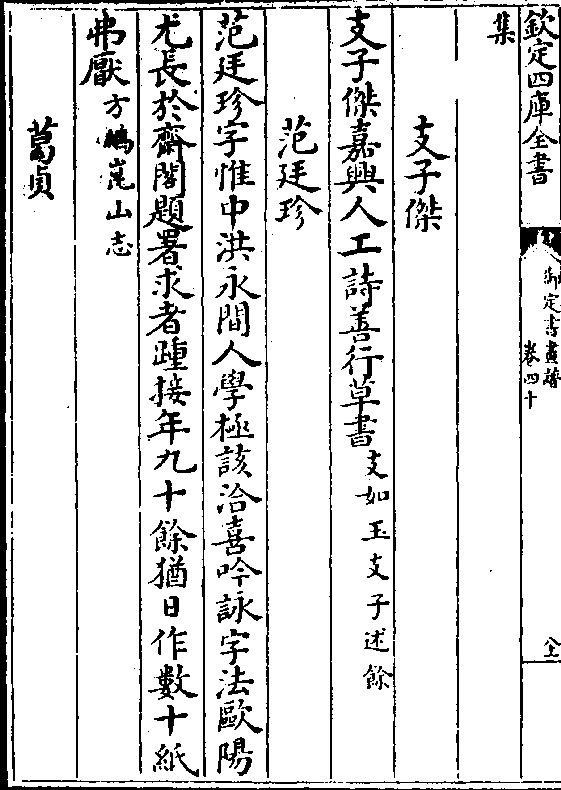 欽定四庫全書
御定書畫譜
卷四十
集
支子傑
支子傑嘉興人工詩善行草書支如玉支子述餘
范廷珍
范廷珍字惟中洪永間人學極該洽喜吟詠字法歐陽
尤長於齋閣題署求者踵接年九十餘猶日作數十紙
弗厭方鵬崑山志
葛貞